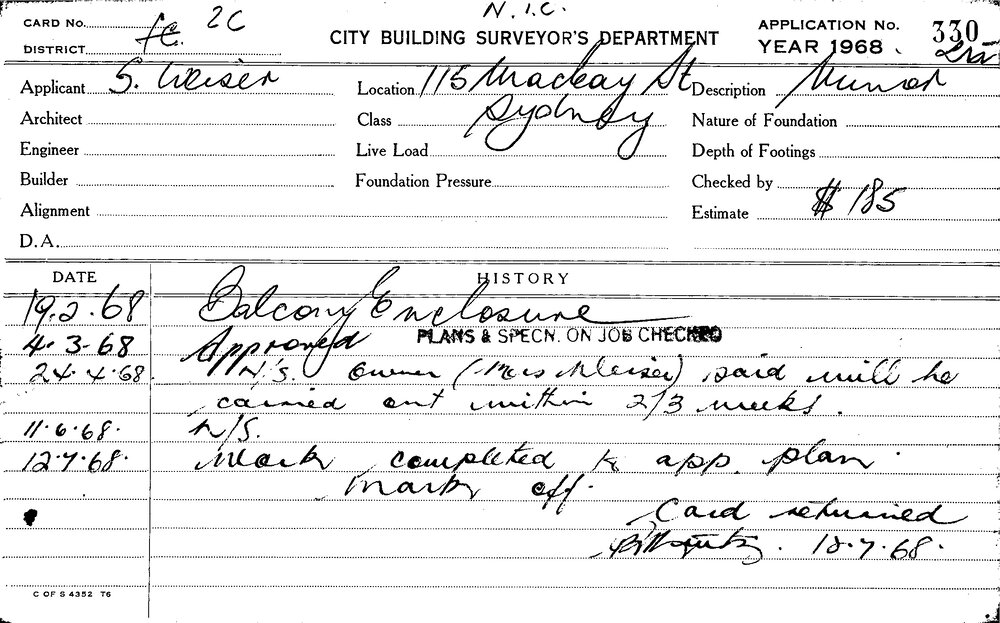 N.I.C.
CARD No. 2C
DISTRICT
CITY BUILDING SURVEYOR'S DEPARTMENT
APPLICATION No. 330
YEAR 1968
Applicant S. Weiser
Location 115 Macleay St
Description Minor
Architect
Class Sydney
Nature of Foundation
Engineer
Live Load
Depth of Footings
Builder
Foundation Pressure
Checked by
Alignment
Estimate $ 185
D.A.
DATE HISTORY
19.2.68 Balcony Enclosure
4.3.68 Approved PLANS & SPECN. ON JOB CHECKED
24.4.68. N.S. owner (Mrs Weiser) said will be
carried out within 2/3 weeks.
11.6.68. N/S.
12.7.68. Work completed to app. plan.
Mark off.
Card returned
18.7.68.
C OF S 4352 T6